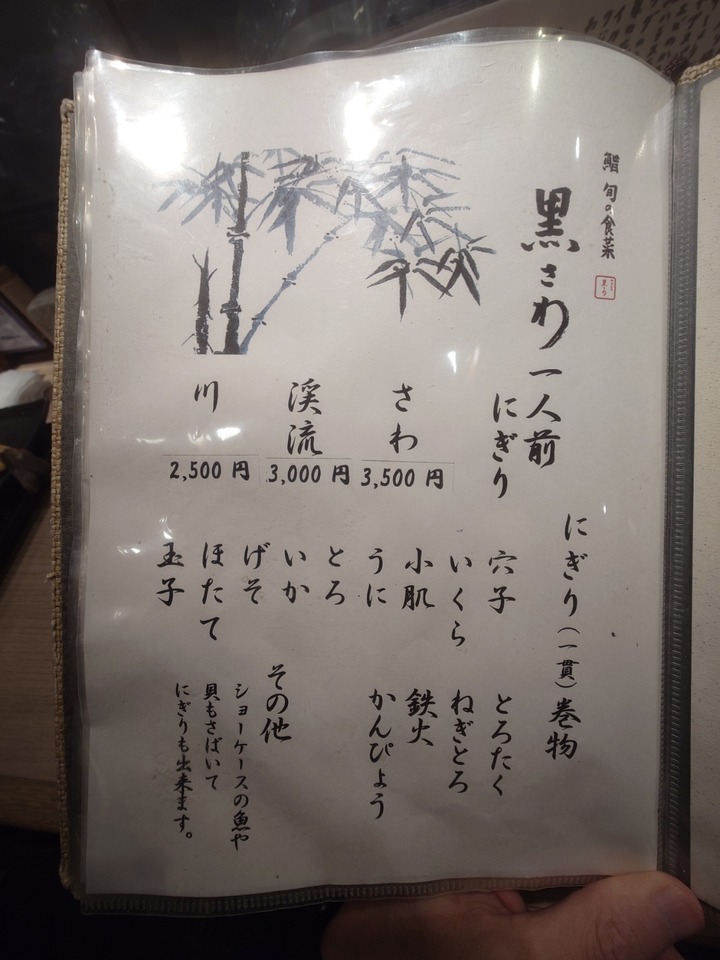 鮨 旬の食菜
黒さわ
一人前
にぎり
さわ
3,500 円
渓流
3,000 円
川
2,500 円
にぎり(一貫)
穴子
いくら
小肌
うに
とろ
いか
げそ
ほたて
玉子
巻物
とろたく
ねぎとろ
鉄火
かんぴょう
その他
ショーケースの魚や
貝もさばいて
にぎりも出来ます。